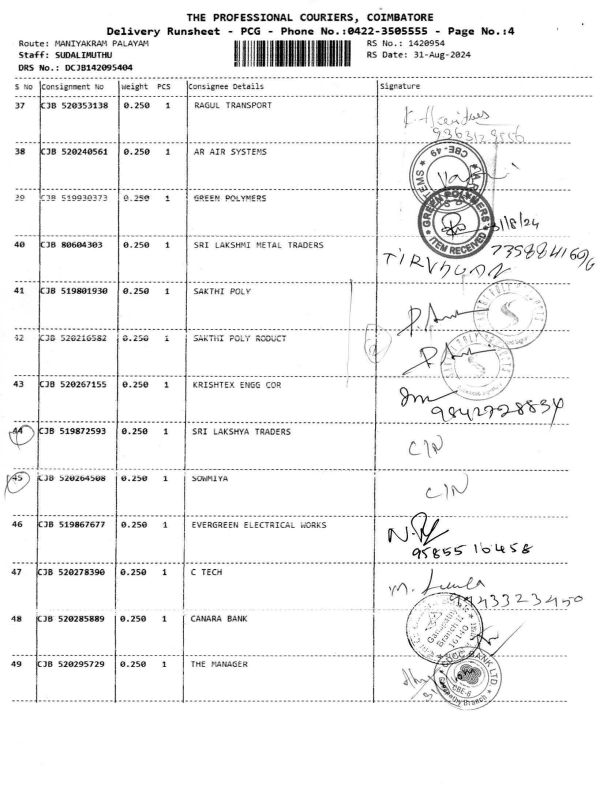 THE PROFESSIONAL COURIERS, COIMBATORE
Delivery Runsheet - PCG - Phone No.:0422-3505555 - Page No.:4
Route: MANIYAKRAM PALAYAM RS No.: 1420954
Staff: SUDALIMUTHU RS Date: 31-Aug-2024
DRS No.: DCJB142095404
S No Consignment No Weight PCS Consignee Details Signature
37 CJB 520353138 0.250 1 RAGUL TRANSPORT
38 CJB 520240561 0.250 1 AR AIR SYSTEMS
CBE-49
39 CJB 519930373 0.250 1 GREEN POLYMERS
GREEN POLYMERS ITEM RECEIVED 31/8/24
40 CJB 80604303 0.250 1 SRI LAKSHMI METAL TRADERS
41 CJB 519801930 0.250 1 SAKTHI POLY
42 CJB 520216582 0.250 1 SAKTHI POLY RODUCT
43 CJB 520267155 0.250 1 KRISHTEX ENGG COR
9842728834
44 CJB 519872593 0.250 1 SRI LAKSHYA TRADERS C/N
45 CJB 520264508 0.250 1 SOWMIYA C/N
46 CJB 519867677 0.250 1 EVERGREEN ELECTRICAL WORKS
9585516458
47 CJB 520278390 0.250 1 C TECH
48 CJB 520285889 0.250 1 CANARA BANK
Ganapathy Branch
49 CJB 520295729 0.250 1 THE MANAGER
BANK LTD CBE-6 Branch